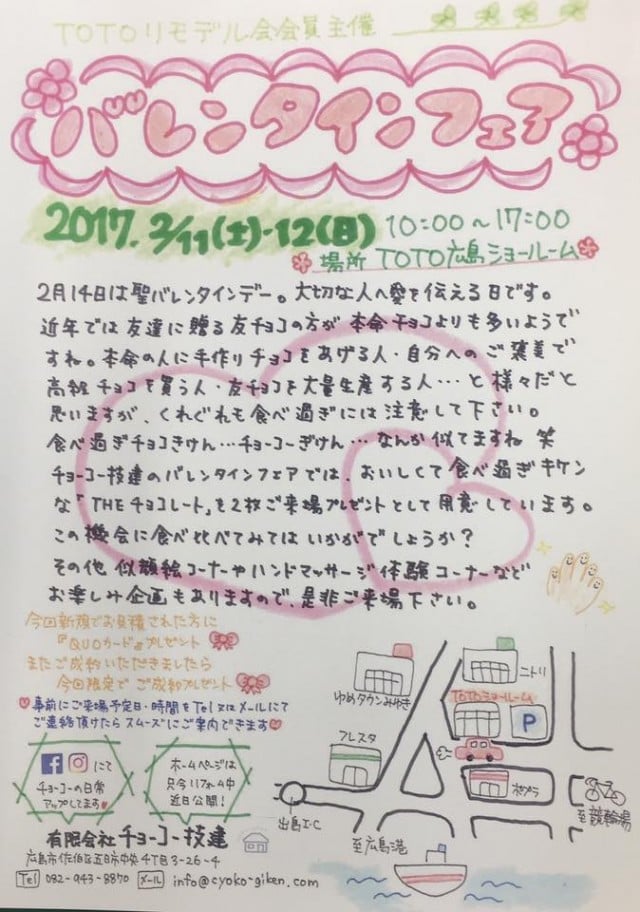 TOTOリモデル会会員主催
バレンタインフェア
2017. 2/11(土)・12(日) 10:00～17:00
場所 TOTO広島ショールーム
2月14日は聖バレンタインデー。大切な人へ愛を伝える日です。
近年では友達に贈る友チョコの方が本命チョコよりも多いようで
すね。本命の人に手作りチョコをあげる人・自分へのご褒美で
高級チョコを買う人・友チョコを大量生産する人…と様々だと
思いますが、くれぐれも食べ過ぎには注意して下さい。
食べ過ぎチョコきけん…チョーコーぎけん…なんか似てますね 笑
チョーコー技建のバレンタインフェアでは、おいしくて食べ過ぎキケン
な「THEチョコレート」を2枚ご来場プレゼントとして用意しています。
この機会に食べ比べてみてはいかがでしょうか？
その他 似顔絵コーナーやハンドマッサージ体験コーナーなど
お楽しみ企画もありますので、是非ご来場下さい。
今回新規でお見積された方に
『QUOカード』プレゼント
またご成約いただきましたら
今回限定でご成約プレゼント
事前にご来場予定日・時間をTel又はメールにて
ご連絡頂けたらスムーズにご案内できます
にて
チョーコーの日常
アップしてます
ホームページは
只今リフォーム中
近日公開！
有限会社チョーコー技建
広島市佐伯区五日市中央4丁目3-26-4
Tel 082-943-8870 メール info@cyoko-giken.com
ゆめタウンみゆき
ニトリ
TOTOショールーム
P
フレスタ
ポプラ
出島I.C
至広島港
至競輪場